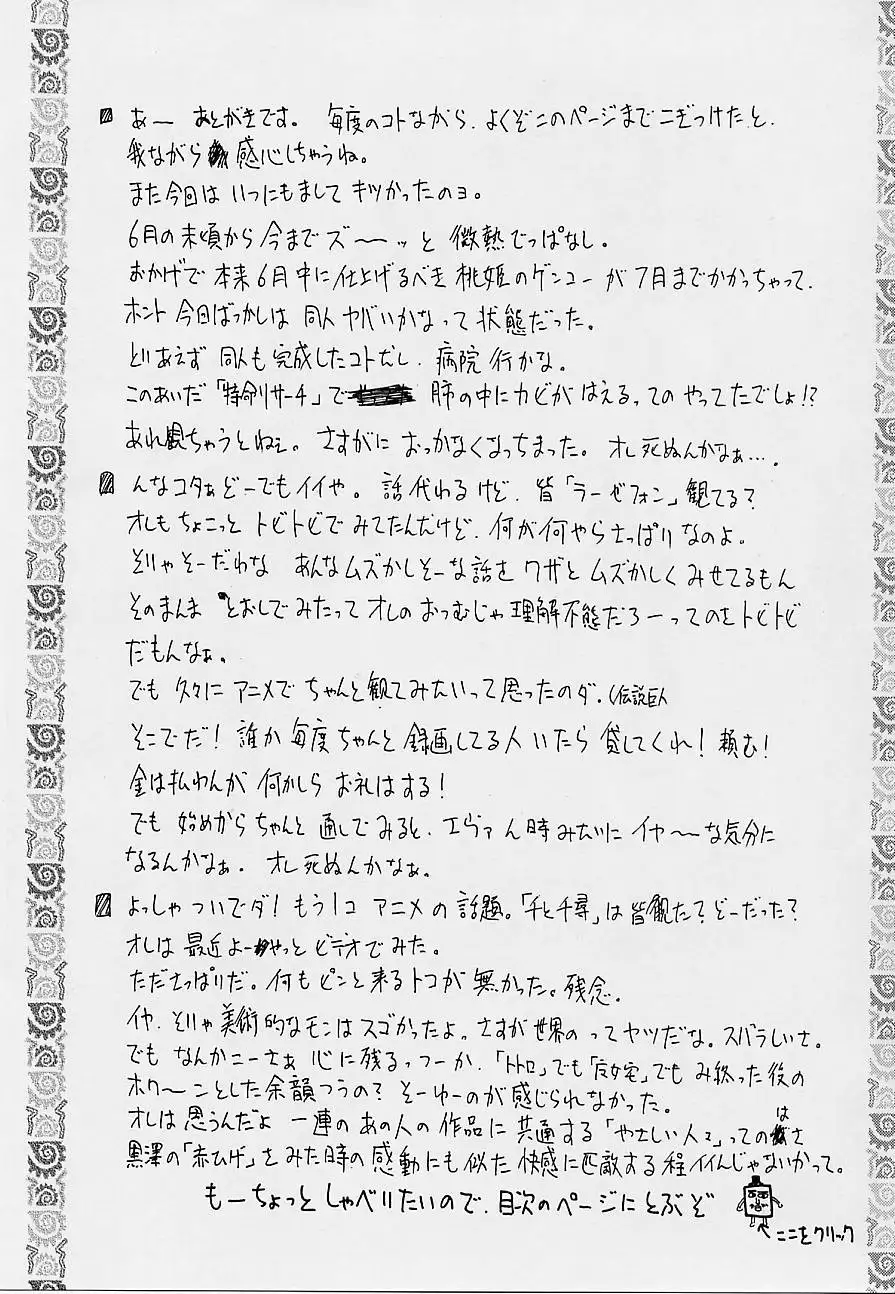 あー あとがきです。 毎度のコトながら、よくぞこのページまでこぎつけたと、
我ながら 感心しちゃうね。
また今回は いつにもまして キツかったのョ。
6月の末頃から 今まで ズ〜ッと 微熱でっぱなし。
おかげで 本来6月中に仕上げるべき 桃姫のゲンコーが 7月までかかっちゃって、
ホント 今回ばっかしは 同人 ヤバいかなって 状態だった。
とりあえず 同人も 完成したコトだし、病院 行かな。
このあいだ「特命リサーチ」で 肺の中にカビがはえるってのやってたでしょ!?
あれ観ちゃうとねェ。 さすがに おっかなくなっちまった。 オレ死ぬんかなぁ…。
んなコタぁどーでもイイや。 話代わるけど、皆「ラーゼフォン」観てる?
オレもちょこっと トビトビで みてたんだけど、何が何やらさっぱりなのよ。
そりゃそーだわな あんなムズかしそーな話を ワザと ムズかしく みせてるもん
そのまんま とおしでみたって オレのおつむじゃ 理解不態だろーってのをトビトビ
だもんなぁ。
でも 久々に アニメで ちゃんと観てみたいって思ったのダ。(伝説巨人
そこでだ! 誰か 毎度ちゃんと 録画してる人 いたら 貸してくれ! 頼む!
金は払わんが 何かしら お礼はする!
でも 始めからちゃんと 通しでみると、エヴァん時みたいに イヤ〜な気分に
なるんかなぁ。 オレ死ぬんかなぁ。
よっしゃ ついでダ! もう1コ アニメの話題。「千と千尋」は皆観た? どーだった?
オレは 最近 よーやっと ビデオでみた。
たださっぱりだ。何もピンと来るトコが 無かった。残念.
イヤ、そりゃ美術的なモンはスゴかったよ。さすが世界の ってヤツだな。スバラしいさ。
でも なんかこーさぁ 心に残るっつーか、「トトロ」でも「魔女宅」でも み終った後の
ホワ〜ンとした余韻つうの? そーゆーのが感じられなかった。
オレは思うんだよ 一連の あの人の作品に 共通する「やさしい人々」ってのはさ
黒澤の「赤ひげ」をみた時の感動にも似た 快感に匹敵する程イイんじゃないかって。
もーちょっと しゃべりたいので、目次のページに とぶぞ
ここをクリック